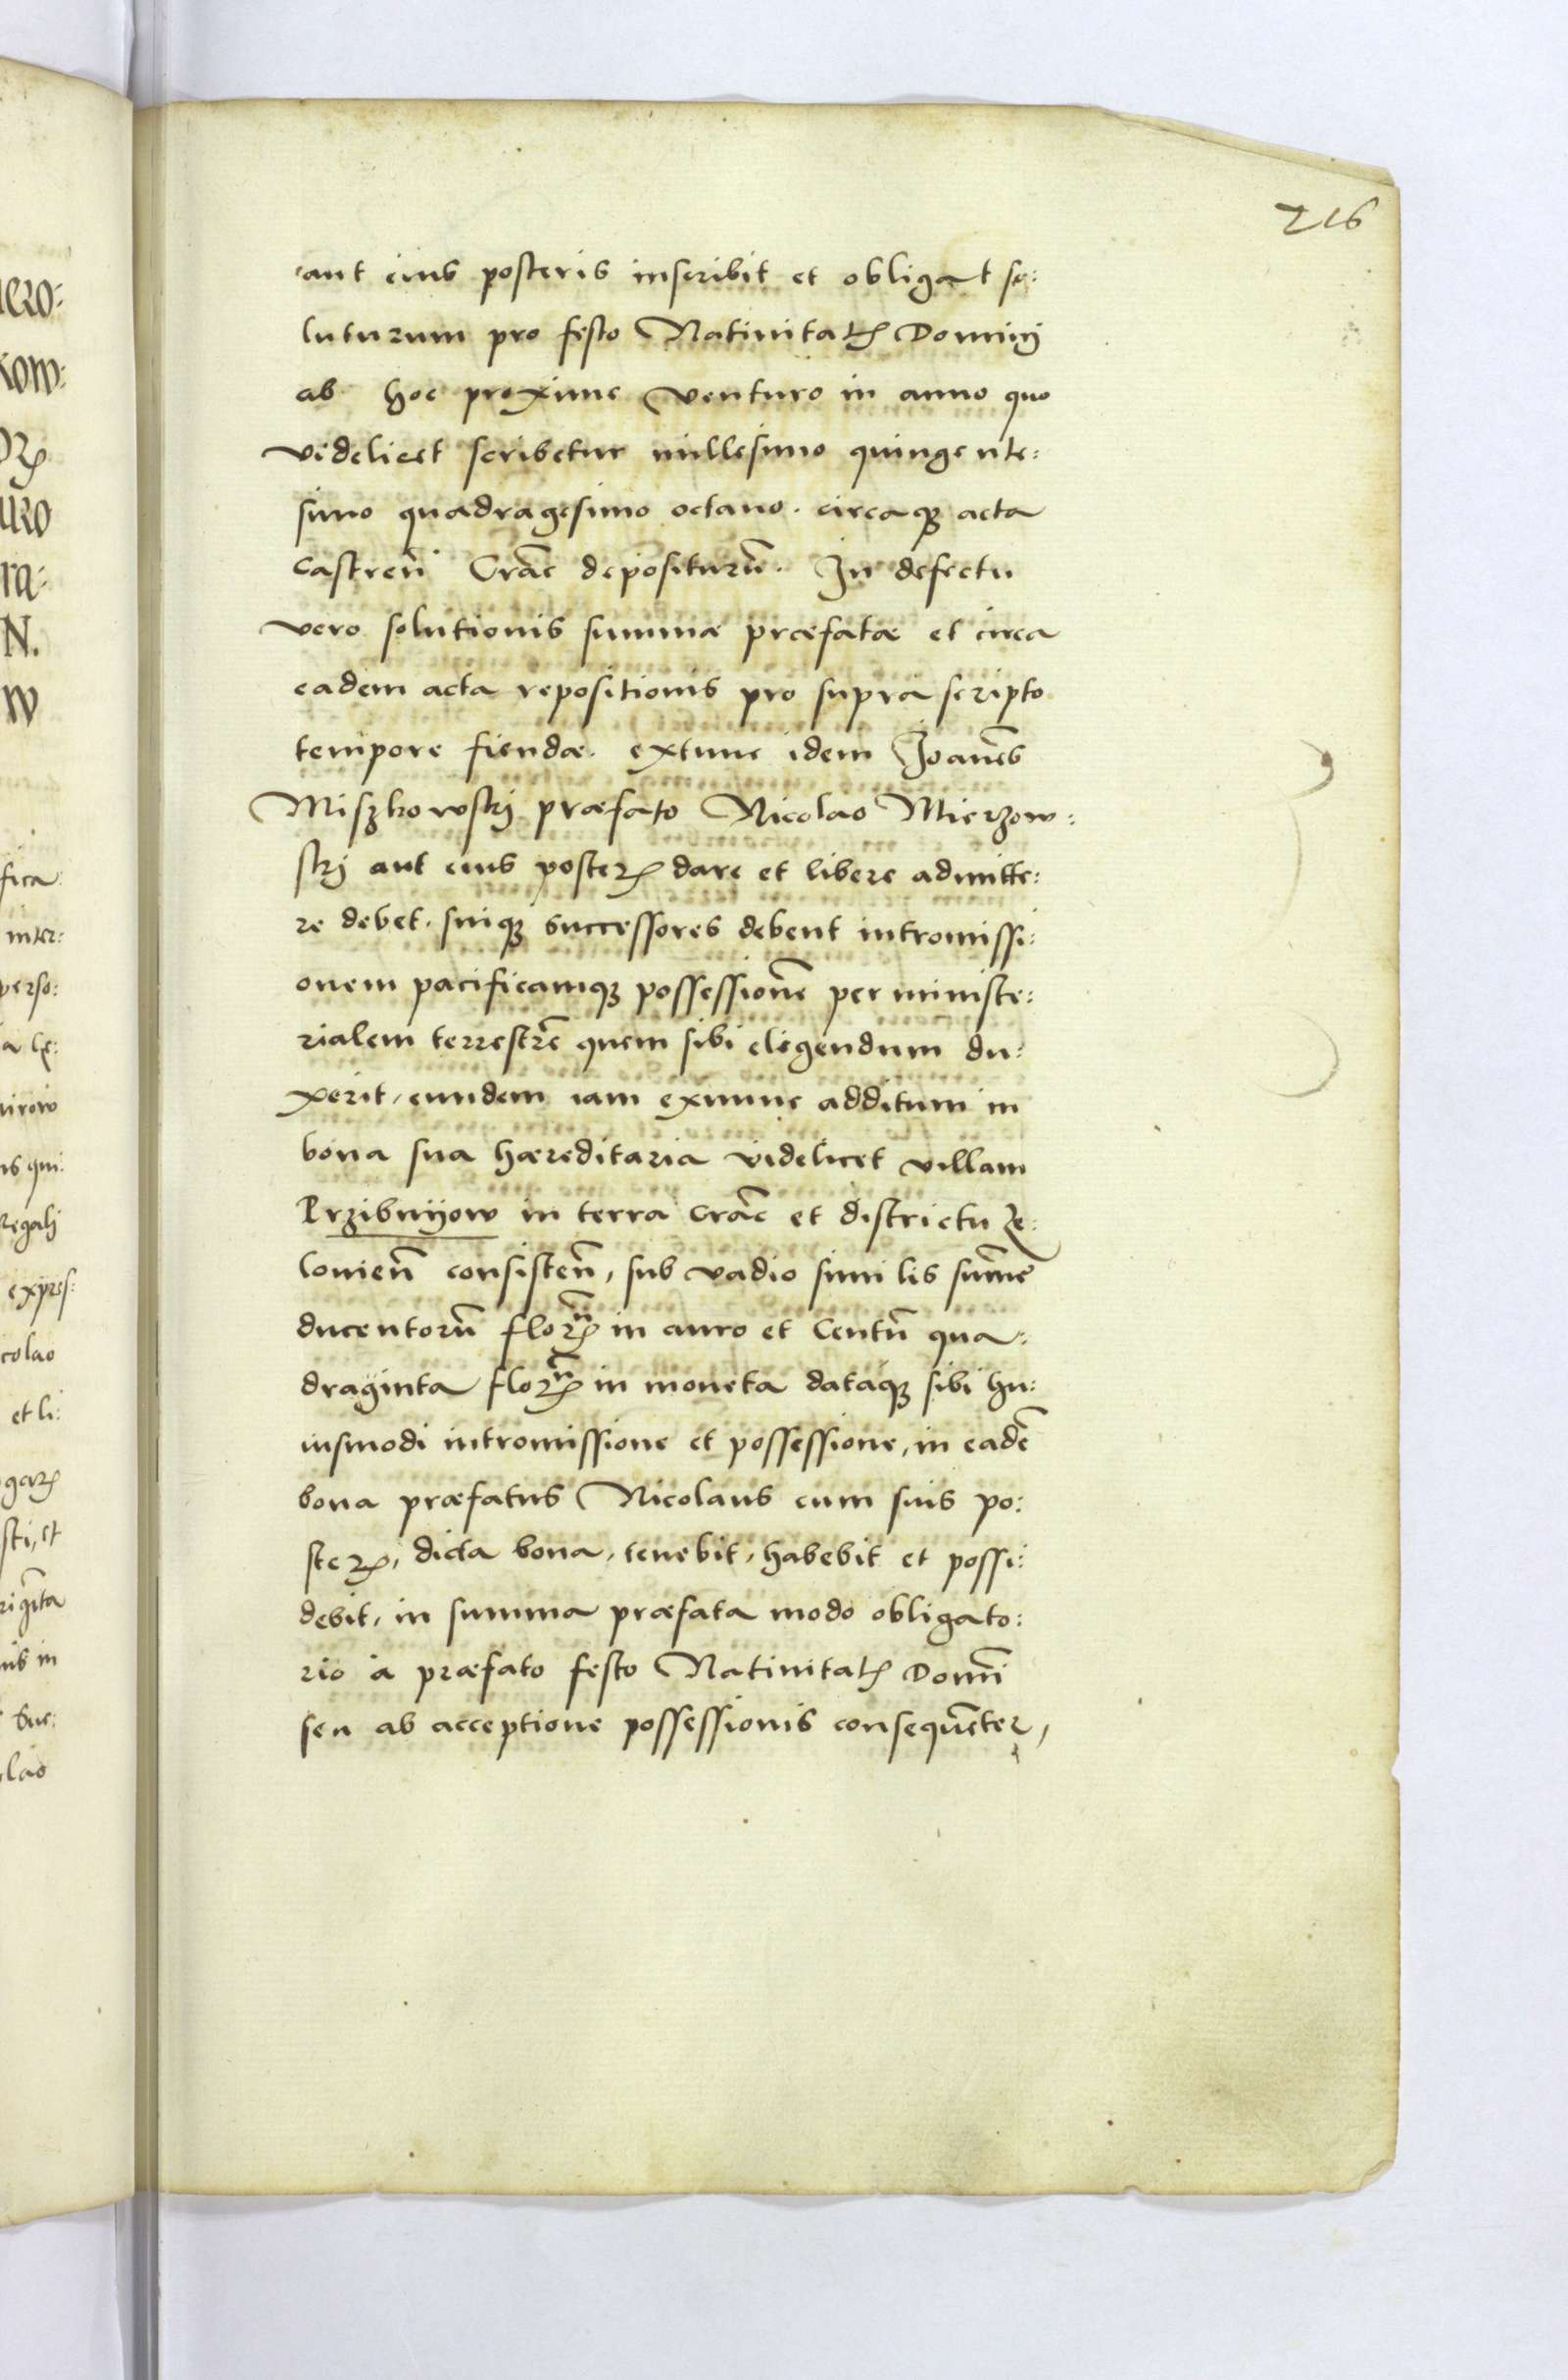 216
aut eius posteris inscribit et obligat so:
luturum pro festo Natiuitatꝭ Domini
ab hoc proxime venturo in anno quo
videlicet scribetur millesimo quingente:
simo quadragesimo octauo. circaqꝫ acta
castren̄ Crac̄ depositurū. In defectu
vero solutionis summæ præfatæ et circa
eadem acta repositionis pro supra scripto
tempore fiendæ. extunc idem Joanēs
Miszkowskj præfato Nicolao Mierzow:
skj aut eius posterꝭ dare et libere admitte:
re debet. suiqꝫ successores debent intromissi:
onem pacificamqꝫ possessionē per ministe:
rialem terrestrē quem sibi eligendum du:
xerit, eundem iam exnunc additum in
bona sua hæreditaria videlicet villam
Przibnijow in terra Crac̄ et districtu Ze:
louien̄ consisten̄, sub vadio similis sum̄e
ducentorū florꝭn̄ in auro et Centū qua:
draginta florꝭn̄ in moneta dataqꝫ sibi hu:
iusmodi intromissione et possessione, in eadē
bona præfatus Nicolaus cum suis po:
sterꝭ, dicta bona, tenebit, habebit et possi:
debit, in summa præfata modo obligato:
rio a præfato festo Natiuitatꝭ Domī
seu ab acceptione possessionis consequēter,
ero:
kow:
uro
ra:
N.
w
fica
inter:
perso:
irow
is qui:
Regalj
expres:
colao
et li:
sti, et
rigīta
nis in
Suc:
lao